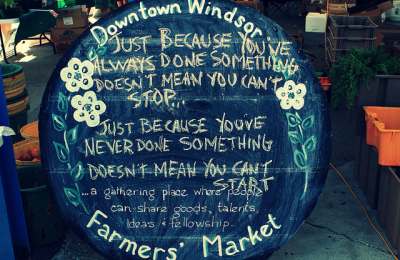 Downtown Windsor
JUST BECAUSE YOU'VE
ALWAYS DONE SOMETHING
DOESN'T MEAN YOU CAN'T
STOP...
JUST BECAUSE YOU'VE
NEVER DONE SOMETHING
DOESN'T MEAN YOU CAN'T
START
...a gathering place where people
can share goods, talents,
Ideas & fellowship...
Farmers' Market